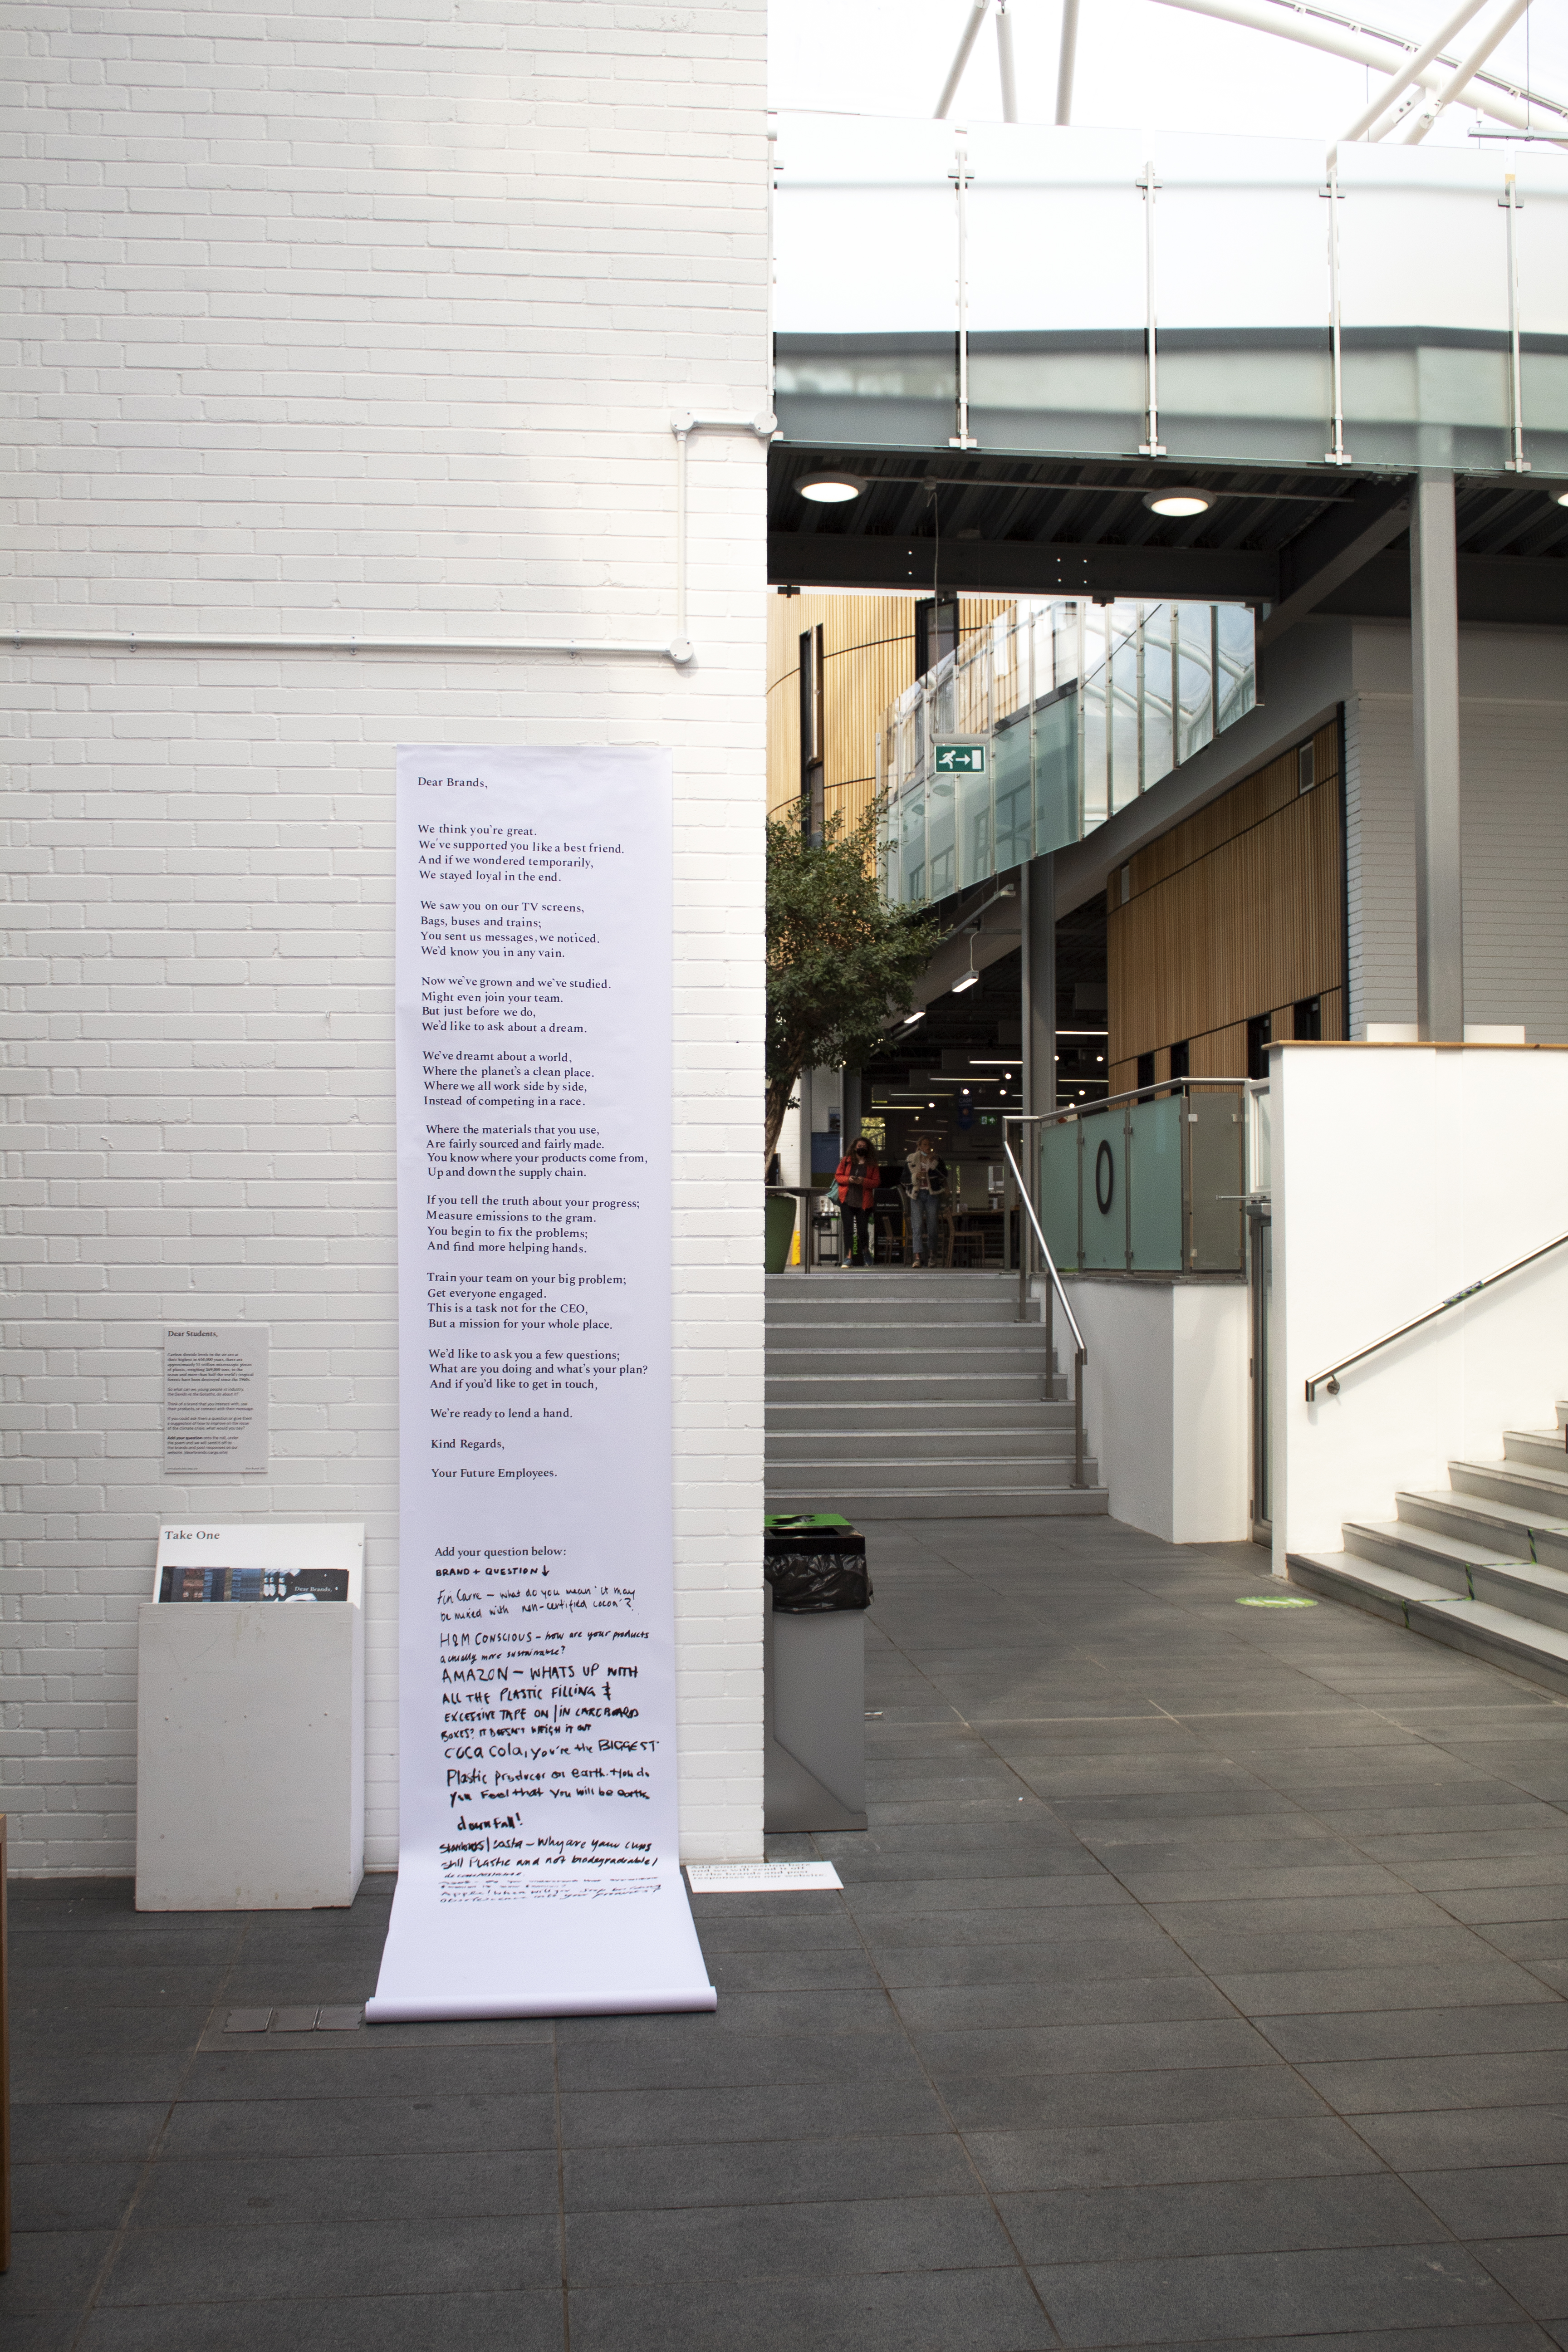 Dear Brands,
We think you're great.
We've supported you like a best friend.
And if we wondered temporarily,
We stayed loyal in the end.
We saw you on our TV screens,
Bags, buses and trains;
You sent us messages, we noticed.
We'd know you in any vain.
Now we've grown and we've studied.
Might even join your team.
But just before we do,
We'd like to ask about a dream.
We've dreamt about a world,
Where the planet's a clean place.
Where we all work side by side,
Instead of competing in a race.
Where the materials that you use,
Are fairly sourced and fairly made.
You know where your products come from,
Up and down the supply chain.
If you tell the truth about your progress;
Measure emissions to the gram.
You begin to fix the problems;
And find more helping hands.
Train your team on your big problem;
Get everyone engaged.
This is a task not for the CEO,
But a mission for your whole place.
We'd like to ask you a few questions;
What are you doing and what's your plan?
And if you'd like to get in touch,
We're ready to lend a hand.
Kind Regards,
Your Future Employees.
Add your question below:
BRAND + QUESTION ↓
what do you mean 'it may
be mixed with non-certified cocoa'?
H&M CONSCIOUS - how are your products
actually more sustainable?
AMAZON - WHATS UP WITH
ALL THE PLASTIC FILLING &
EXCESSIVE TAPE ON/IN CARDBOARD
BOXES? IT DOESN'T WEIGH IT OUT
COCA COLA, you're the BIGGEST
Plastic producer on earth. How do
you Feel that You will be earths
downfall!
Starbucks/Costa - Why are your cups
still Plastic and not biodegradable/
Dear Students,
Take One
Dear Brands,